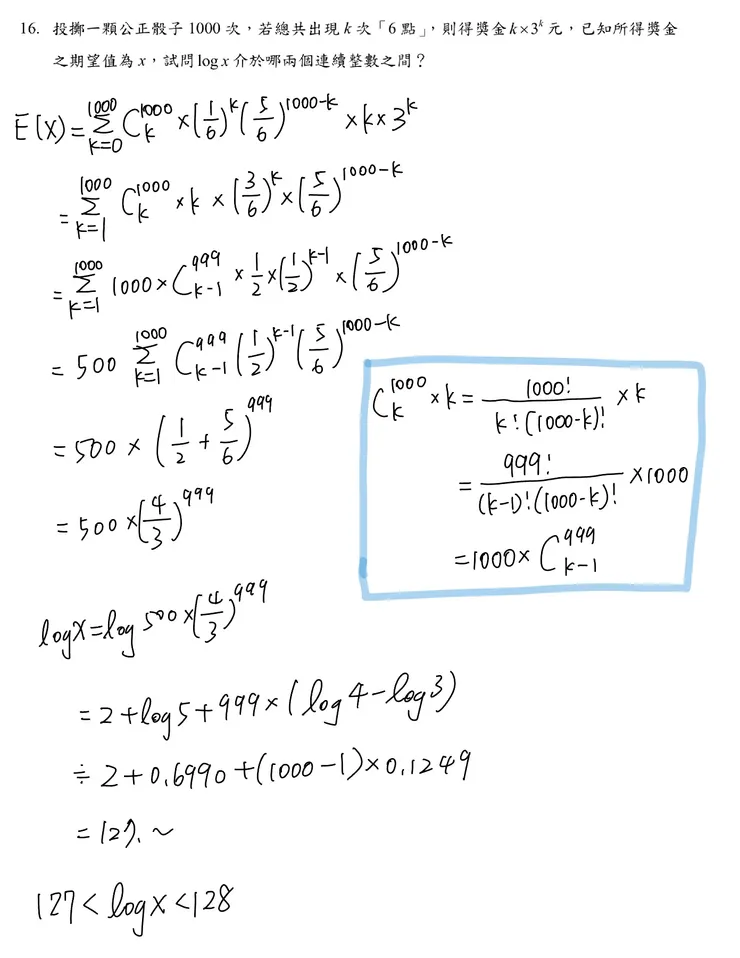 16. 投擲一顆公正骰子 1000 次，若總共出現 k 次「6 點」，則得獎金 k×3^k 元，已知所得獎金
之期望值為 x，試問 log x 介於哪兩個連續整數之間？
E(X)=∑_{k=0}^{1000} C_k^{1000}×(1/6)^k(5/6)^{1000-k}×k×3^k
=∑_{k=1}^{1000} C_k^{1000}×k×(3/6)^k×(5/6)^{1000-k}
=∑_{k=1}^{1000} 1000×C_{k-1}^{999}×1/2×(1/2)^{k-1}×(5/6)^{1000-k}
=500 ∑_{k=1}^{1000} C_{k-1}^{999}(1/2)^{k-1}(5/6)^{1000-k}
=500×(1/2+5/6)^{999}
=500×(4/3)^{999}
C_k^{1000}×k=1000!/(k!(1000-k)!)×k
=999!/((k-1)!(1000-k)!)×1000
=1000×C_{k-1}^{999}
logX=log500×(4/3)^{999}
=2+log5+999×(log4-log3)
≑2+0.6990+(1000-1)×0.1249
=127.~
127<logX<128